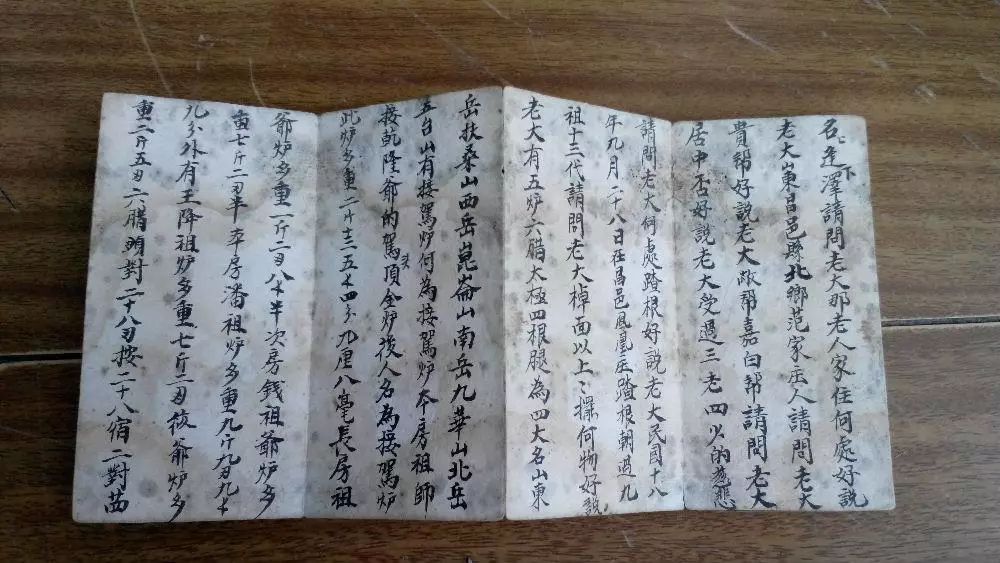 名逢澤下請問老大那老人家住何處好説
老大山東昌邑縣北鄉范家庄人請問老大
貴幇好説老大敝幇嘉白幇請問老大
居中否好説老大受過三老四少的慈悲
請問老大何處踏根好説老大民國十八
年九月二十八日在昌邑鳳凰庄踏根朝過九
祖十三代請問老大棹面以上擺何物好説
老大有五炉六腊太極四根腿為四大名山東
岳扶桑山西岳崑崙山南岳九華山北岳
五台山有接駕炉何為接駕炉本房祖師
接乾隆爺的駕頭頂金炉後人名為接駕炉
此炉多重二斤三五四分九厘八毫長房祖
爺炉多重一斤二刃八半次房錢祖爺炉多
重七斤二刃半三房潘祖炉多重九斤九刃九
九分外有王降祖炉多重七斤二刃爺炉多
重二斤五刃六腊頭對二十八刃按二十八宿二對